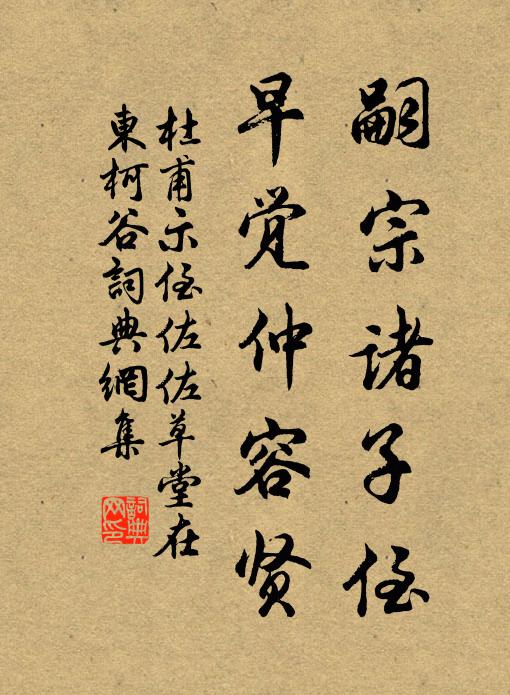 嗣宗诸子侄
早觉仲容贤
杜甫示侄佐佐草堂在
東柯谷詞典網集
詞典網印